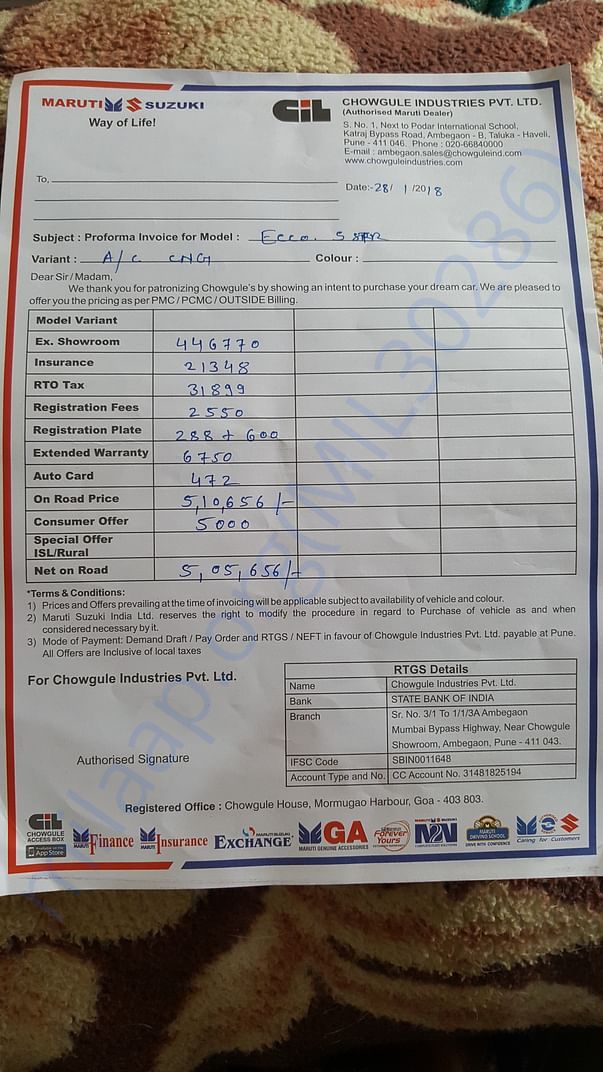 MARUTI SUZUKI
Way of Life!
CIL
CHOWGULE INDUSTRIES PVT. LTD.
(Authorised Maruti Dealer)
S. No. 1, Next to Podar International School,
Katraj Bypass Road, Ambegaon - B, Taluka - Haveli,
Pune - 411 046. Phone : 020-66840000
E-mail : ambegaon.sales@chowguleind.com
www.chowguleindustries.com
To,
Date:-28/ 1 /2018
Subject : Proforma Invoice for Model : Ecco. 5 STR
Variant : A/C CNG Colour :
Dear Sir / Madam,
We thank you for patronizing Chowgule's by showing an intent to purchase your dream car. We are pleased to
offer you the pricing as per PMC / PCMC / OUTSIDE Billing.
Model Variant
Ex. Showroom 446770
Insurance 21348
RTO Tax 31899
Registration Fees 2550
Registration Plate 288 + 600
Extended Warranty 6750
Auto Card 472
On Road Price 5,10,656/-
Consumer Offer 5000
Special Offer
ISL/Rural
Net on Road 5,05,656/-
*Terms & Conditions:
1) Prices and Offers prevailing at the time of invoicing will be applicable subject to availability of vehicle and colour.
2) Maruti Suzuki India Ltd. reserves the right to modify the procedure in regard to Purchase of vehicle as and when
considered necessary by it.
3) Mode of Payment: Demand Draft / Pay Order and RTGS / NEFT in favour of Chowgule Industries Pvt. Ltd. payable at Pune.
All Offers are Inclusive of local taxes
For Chowgule Industries Pvt. Ltd.
Authorised Signature
RTGS Details
Name Chowgule Industries Pvt. Ltd.
Bank STATE BANK OF INDIA
Branch Sr. No. 3/1 To 1/1/3A Ambegaon
Mumbai Bypass Highway, Near Chowgule
Showroom, Ambegaon, Pune - 411 043.
IFSC Code SBIN0011648
Account Type and No. CC Account No. 31481825194
Registered Office : Chowgule House, Mormugao Harbour, Goa - 403 803.
CIL
CHOWGULE
ACCESS BOX
Available on the
App Store
MARUTI Finance
MARUTI Insurance
MARUTI SUZUKI
EXCHANGE
MGA
MARUTI GENUINE ACCESSORIES
Forever
Yours
MARUTI SUZUKI
N2N
MARUTI
DRIVING SCHOOL
DRIVE WITH CONFIDENCE
Caring for Customers